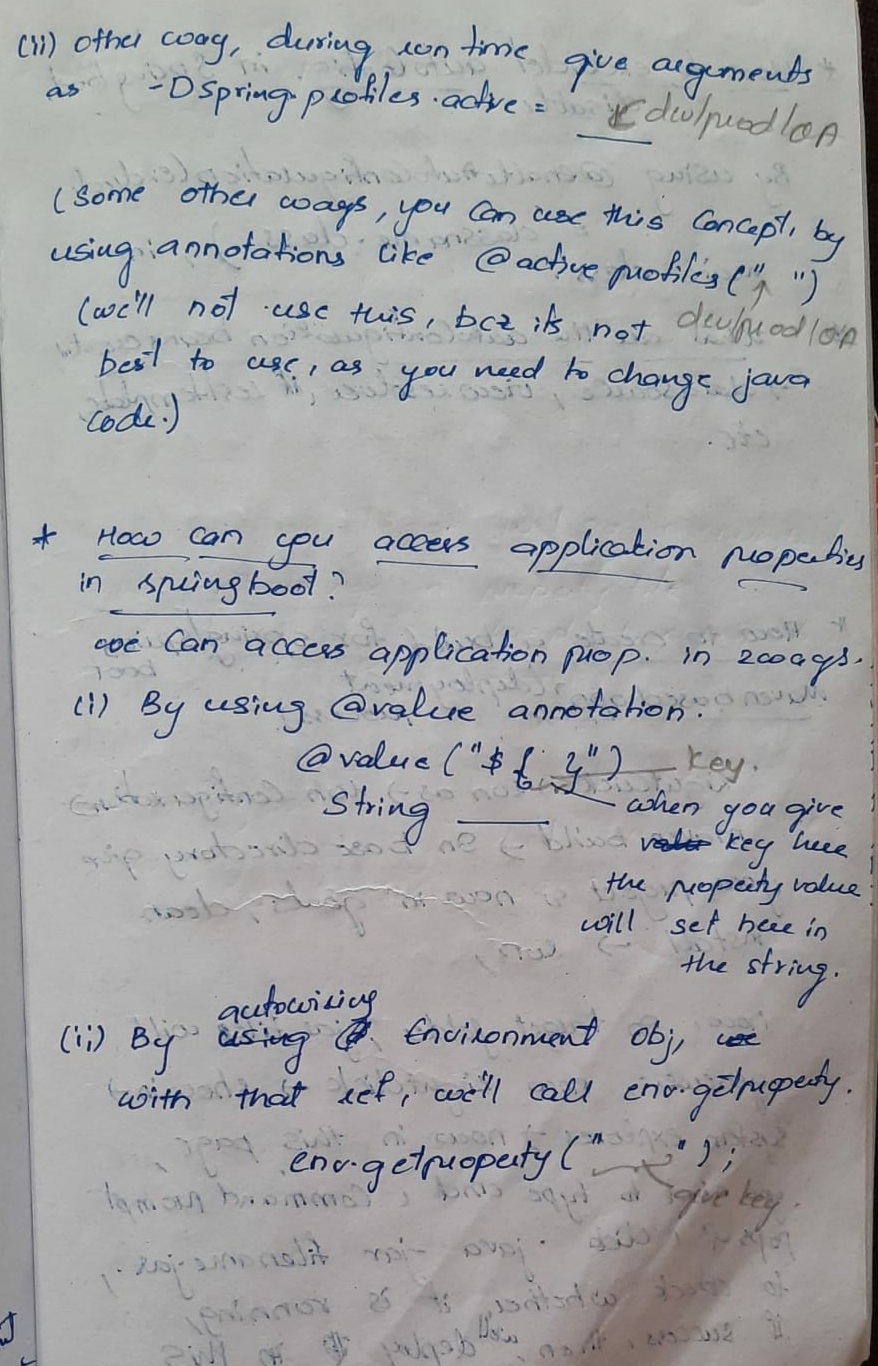 (ii) other way, during run time give arguments
as -DSpring.profiles.active = dev/prod/QA
(Some other ways, you can use this concept, by
using annotations like @active profiles(" ")
(we'll not use this, bcz its not dev/prod/QA
best to use, as you need to change java
code.)
* How can you access application properties
in springboot?
we can access application prop. in 2 ways.
(i) By using @value annotation.
@value ("${ }") key.
String ___ when you give
key here
the property value
will set here in
the string.
autowiring
(ii) By using Environment obj, we
with that ref, we'll call env.getproperty.
env.getproperty(" ");
give key.